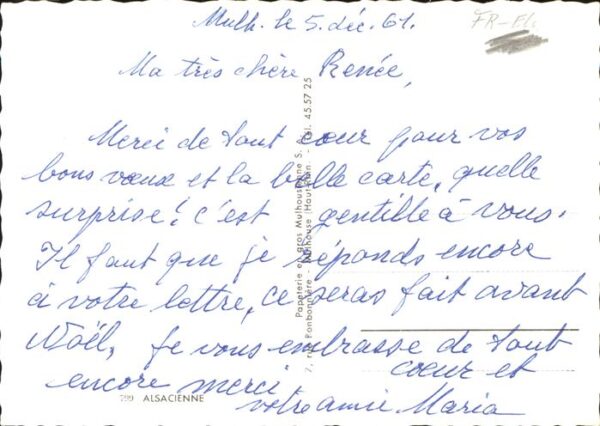 Mulh. le 5. déc. 61.
FR-Els
Ma très chère Renée,
Merci de tout cœur pour vos
bons vœux et la belle carte, quelle
surprise! c'est gentille à vous.
Il faut que je réponds encore
à votre lettre, ce seras fait avant
Noël, je vous embrasse de tout
cœur et
encore merci
votre amie Maria
Papeterie en gros Mulhousienne S. A.
7, rue Ponbonnière - Mulhouse (Haut-Rhin) - Tél. 45.57 25
799 ALSACIENNE